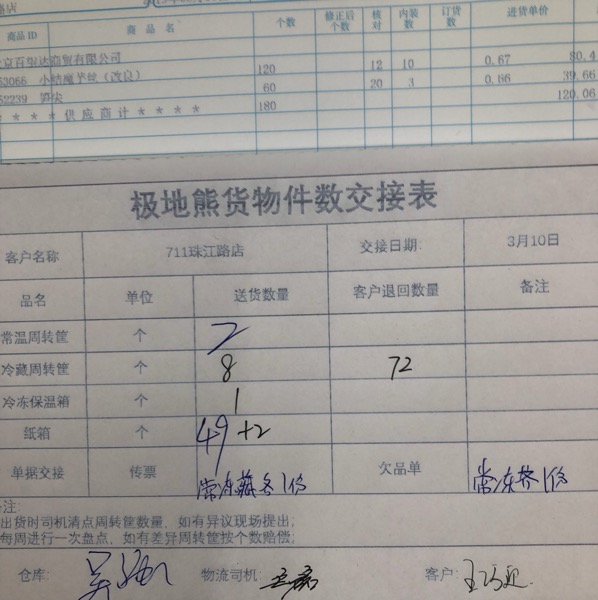 路店
商品ID 商品名 个数 修正后个数 核对 内装数 订货数 进货单价
53066 小结魔芋丝（改良） 120 12 10 0.67 80.4
52239 笋尖 60 20 3 0.66 39.66
* * * * 供应商计 * * * * * 180 120.06
极地熊货物件数交接表
客户名称 711珠江路店 交接日期: 3月10日
品名 单位 送货数量 客户退回数量 备注
常温周转筐 个 7
冷藏周转筐 个 8 72
冷冻保温箱 个 1
纸箱 个 49+2
单据交接 传票 常冻藏各1份 欠品单 常冻 1份
备注:
出货时司机清点周转筐数量, 如有异议现场提出;
每周进行一次盘点, 如有差异周转筐按个数赔偿;
仓库: 物流司机: 客户: